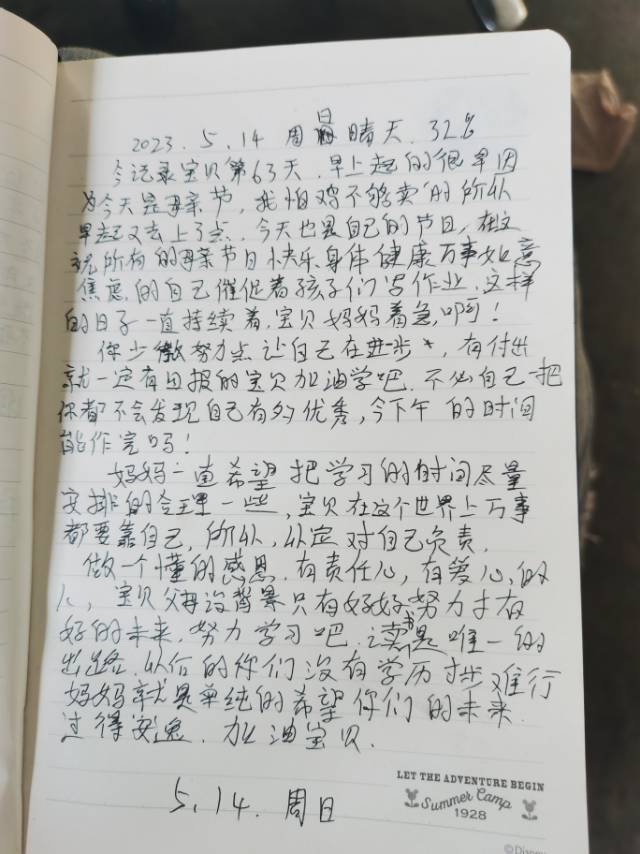 2023.5.14 周日 晴天.32%
今记录宝贝第63天.早上起的很早因
为今天是母亲节,我怕鸡不够卖的所以
早起又去上了点.今天也是自己的节日,在这
祝所有的母亲节日快乐身体健康万事如意
焦虑的自己催促着孩子们写作业.这样
的日子一直持续着,宝贝妈妈着急,啊!
你少微努力点让自己在进步*,有付出
就一定有回报的宝贝加油学吧.不必自己一把
你都不会发现自己有多优秀,今下午的时间
能作完吗!
妈妈一直希望把学习的时间尽量
安排的合理一些,宝贝在这个世界上万事
都要靠自己,所以,认定对自己负责.
做一个懂的感恩.有责任心,有爱心,的
人,宝贝父母没背景只有好好努力才有
好的未来.努力学习吧.读书是唯一的
出路.以后的你们没有学历寸步难行
妈妈就是单纯的希望你们的未来.
过得安逸.加油宝贝.
5.14.周日
LET THE ADVENTURE BEGIN
Summer Camp
1928
©Disney